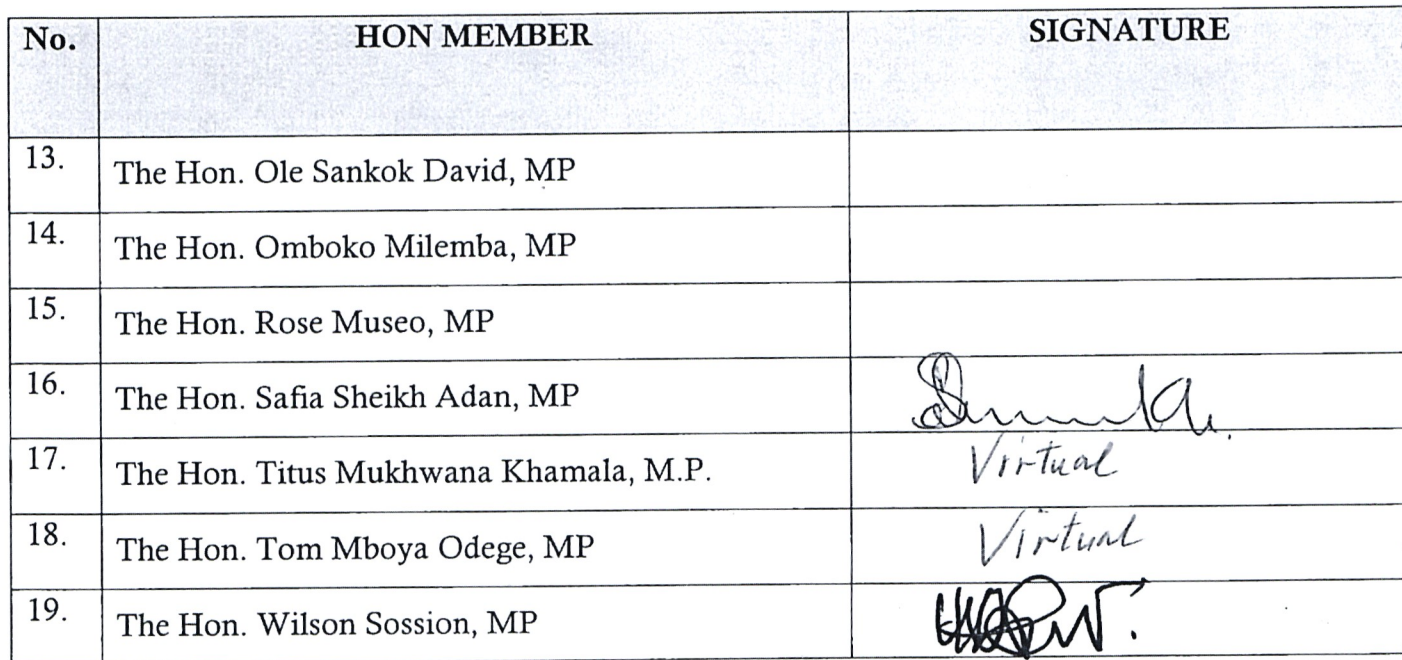 No. HON MEMBER SIGNATURE
13. The Hon. Ole Sankok David, MP
14. The Hon. Omboko Milemba, MP
15. The Hon. Rose Museo, MP
16. The Hon. Safia Sheikh Adan, MP
17. The Hon. Titus Mukhwana Khamala, M.P. Virtual
18. The Hon. Tom Mboya Odege, MP Virtual
19. The Hon. Wilson Sossion, MP